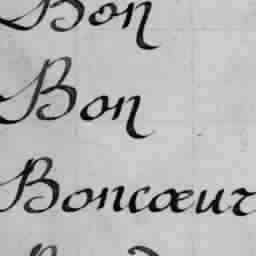 Bon
Bon
Boncœur